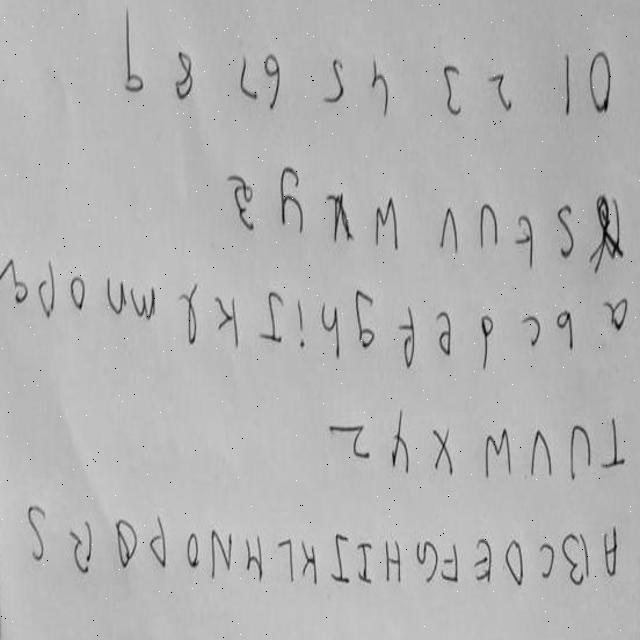 A B C D E F G H I J K L M N O P Q R S
T U V W X Y Z
a b c d e f g h i J k l m n o p q
S t u v w x y z
0 1 2 3 4 5 6 7 8 9